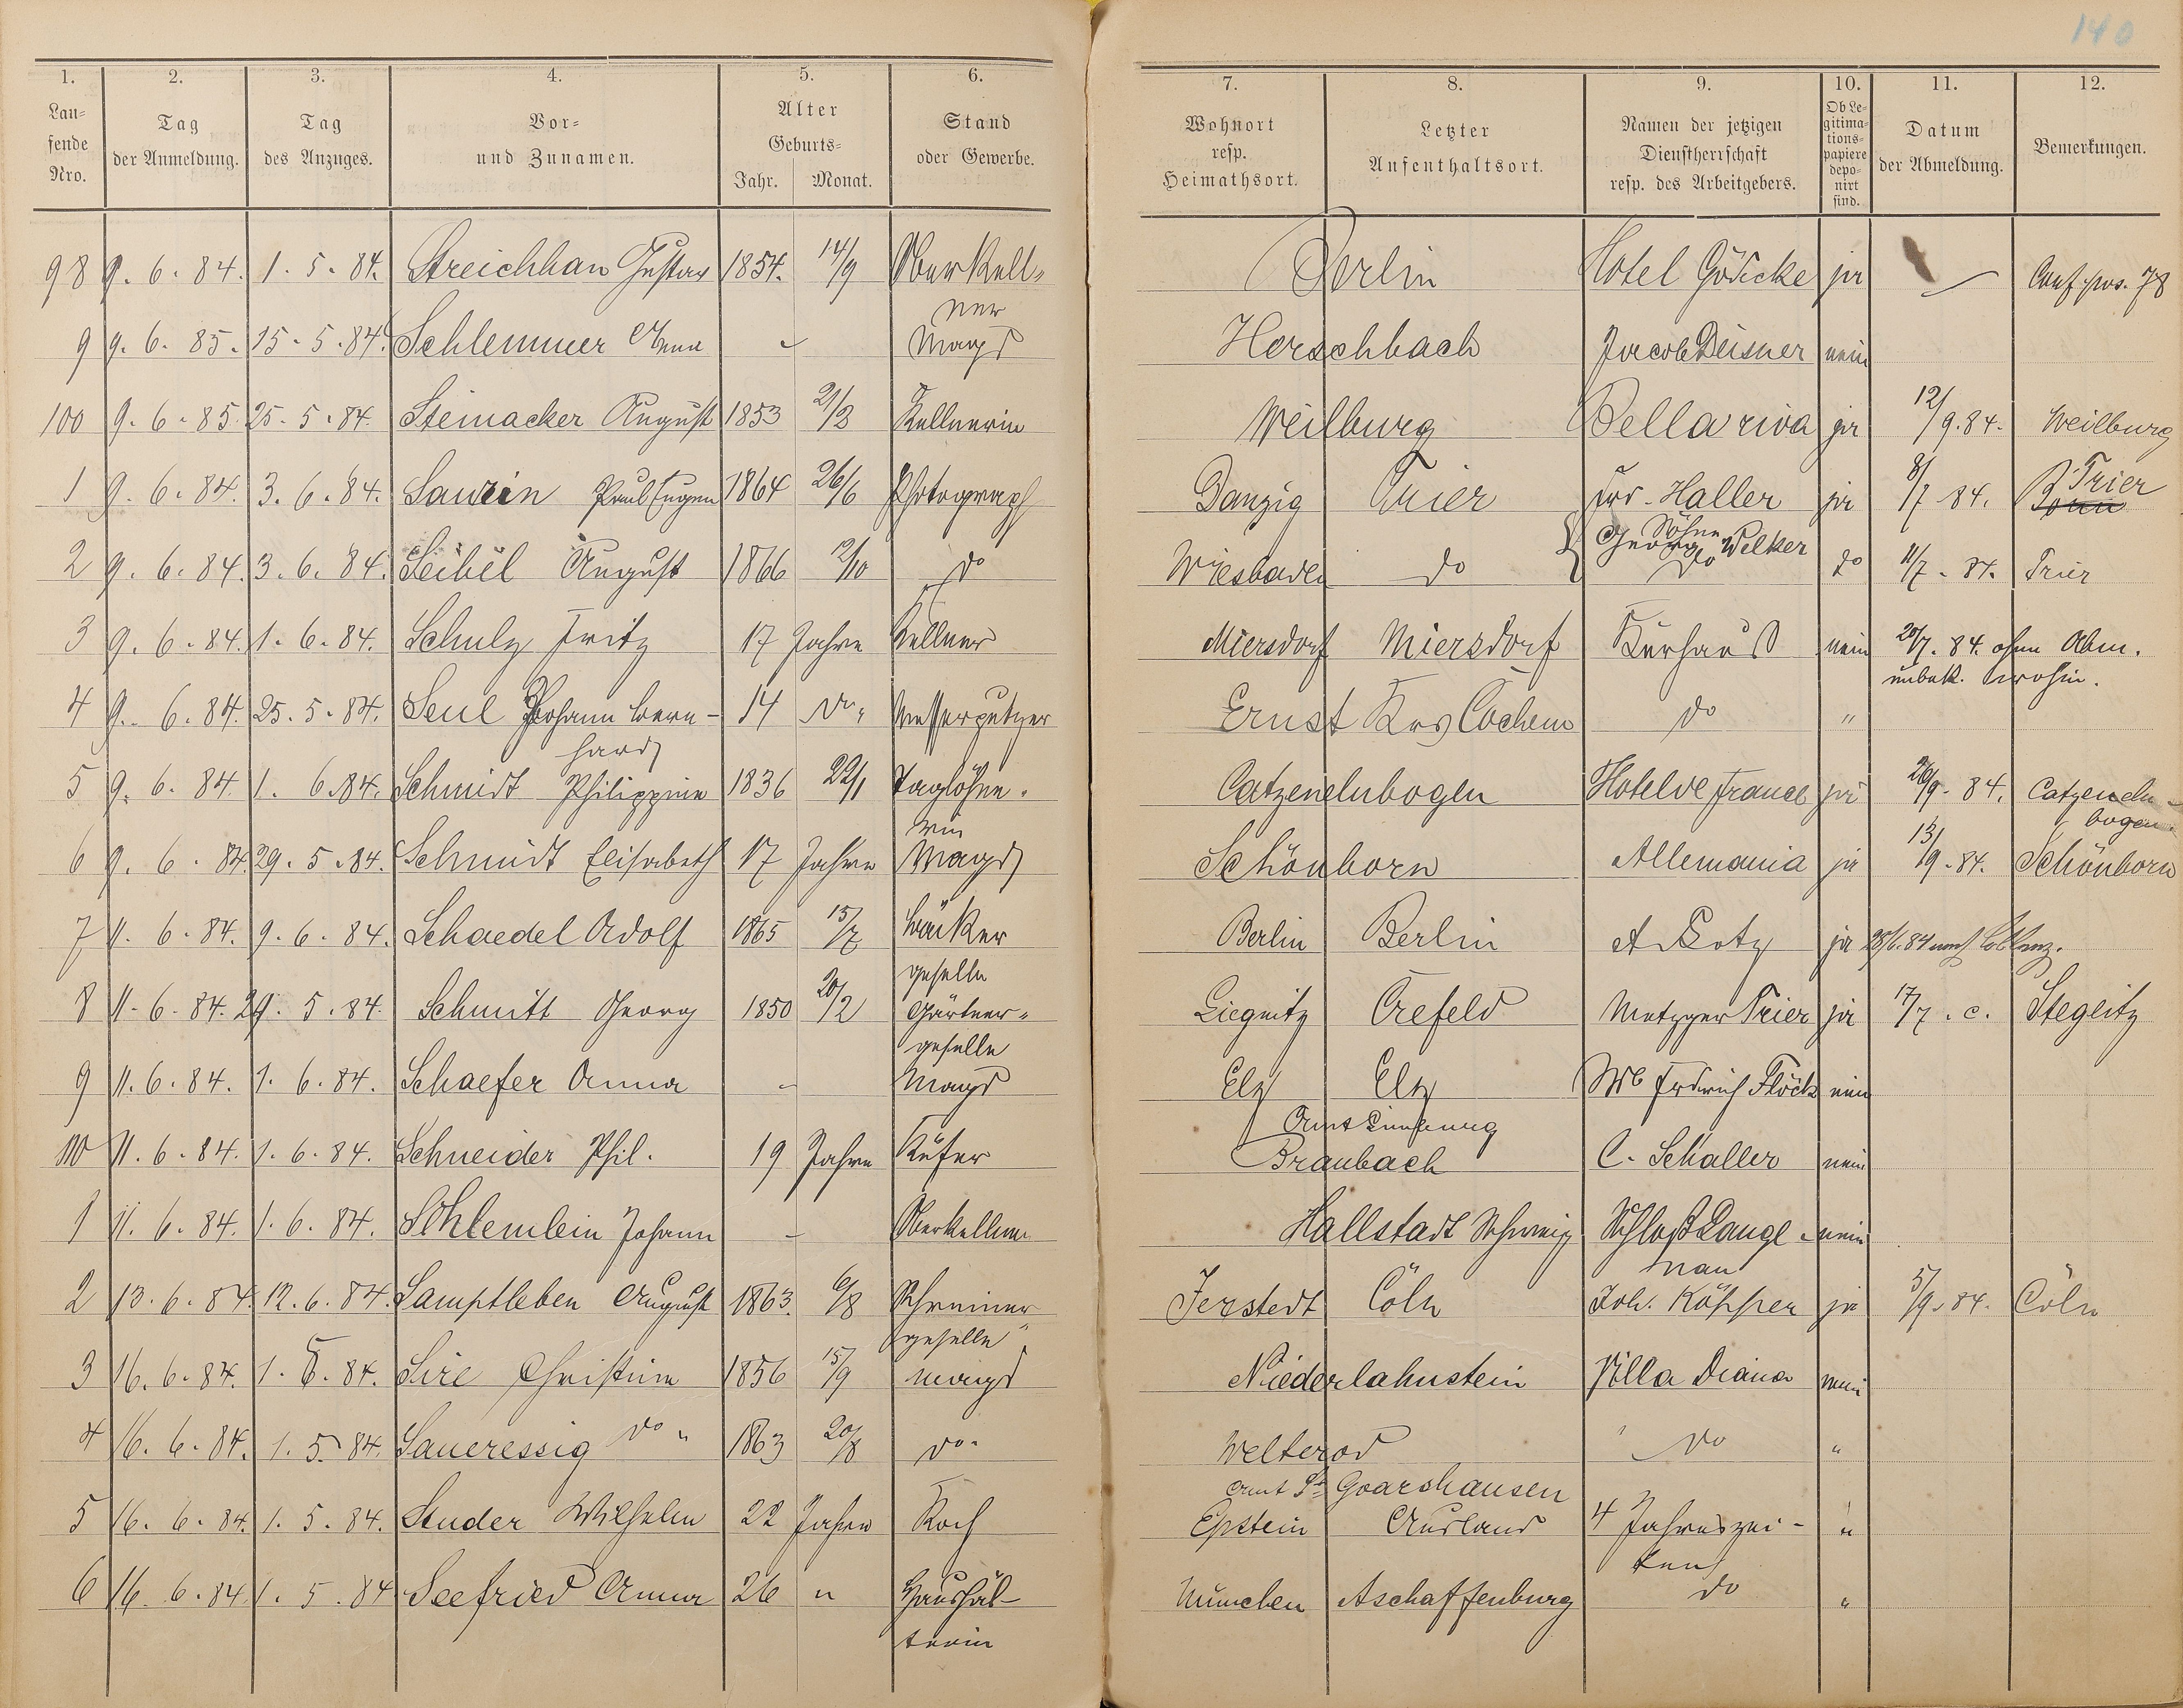 140
1. 2. 3. 4. 5. 6. 7. 8. 9. 10. 11. 12.
Lau-
fende
Nro.
Tag
der Anmeldung.
Tag
des Anzuges.
Vor-
und Zunamen.
Alter
Geburts-
Jahr. Monat.
Stand
oder Gewerbe.
Wohnort
resp.
Heimathsort.
Letzter
Aufenthaltsort.
Namen der jetzigen
Dienstherrschaft
resp. des Arbeitgebers.
Ob Le-
gitima-
tions-
papiere
depo-
nirt
sind.
Datum
der Abmeldung.
Bemerkungen.
98 9. 6. 84. 1. 5. 84. Streichhan Gustav 1854. 14/9 Oberkell- Berlin Hotel Gödecke ja — Conf. pos. 78
ner
9 9. 6. 85. 15. 5. 84. Schlemmer Anna - Magd Herschbach Jacob Deisner nein
100 9. 6. 85. 25. 5. 84. Steinacker August 1853 21/2 Kellnerin Weilburg Bella riva ja 12/9. 84. Weilburg
1 9. 6. 84. 3. 6. 84. Saurin Paul Eugen 1864 26/6 Photograph Danzig Trier Haller ja 8/7 84. Trier
Bonn
Söhne
2 9. 6. 84. 3. 6. 84. Seibel August 1866 12/10 do Wiesbaden do Georg Welker do 11/7. 84. Trier
do
3 9. 6. 84. 1. 6. 84. Schulz Fritz 17 Jahre Kellner Miersdorf Miersdorf Kurhaus nein 20/7. 84. ohne Abm.
unbek. wohin.
4 9. 6. 84. 25. 5. 84. Seul Johann Bern- 14 do. Messerputzer Ernst Krs Cochem do "
hard
5 9. 6. 84. 1. 6. 84. Schmidt Philippine 1836 22/1 Taglöhne. Catzenelnbogen Hotel de France ja 26/9. 84. Catzeneln-
rin bogen.
6 9. 6. 84. 29. 5. 84. Schmidt Elisabeth 17 Jahre Magd Schönborn Allemania ja 13/9. 84. Schönborn
7 11. 6. 84. 9. 6. 84. Schaedel Adolf 1865 15/7 Bäcker Berlin Berlin ja 28/6. 84 nach Coblenz.
geselle
8 11. 6. 84. 29. 5. 84. Schmitt Georg 1850 20/2 Gärtner- Liegnitz Crefeld Metzger Trier ja 17/7. c. Steglitz
geselle
9 11. 6. 84. 1. 6. 84. Schaefer Anna - Magd Elz Elz Flöck nein
Amt Limburg
110 11. 6. 84. 1. 6. 84. Schneider Phil. 19 Jahre Küfer Braubach C. Schaller nein
1 11. 6. 84. 1. 6. 84. Schlemlein Johann - Oberkellner Hallstadt Schweiz Schloß Lange- nein
nau
2 13. 6. 84. 12. 6. 84. Samptleben August 1863. 6/8 Schreiner Jerstedt Cöln Joh. Köpper ja 5/9. 84. Cöln
geselle
3 16. 6. 84. 1. 5. 84. Sire Christine 1856 15/9 Magd Niederlahnstein Villa Diana nein
4 16. 6. 84. 1. 5. 84. Saueressig do " 1863 20/8 do. Welterod do "
Amt St. Goarshausen
5 16. 6. 84. 1. 5. 84. Studer Wilhelm 22 Jahre Koch Epstein Ausland 4 Jahreszei- "
ten
6 16. 6. 84 1. 5. 84 Seefried Anna 26 " Haushäl- München Aschaffenburg do "
terin